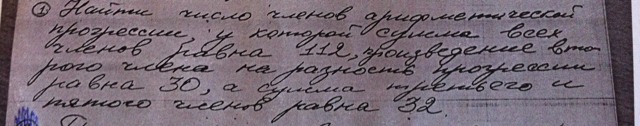 ① Найти число членов арифметической
прогрессии, у которой сумма всех
членов равна 112, произведение вто-
рого члена на разность прогрессии
равна 30, а сумма третьего и
пятого членов равна 32.